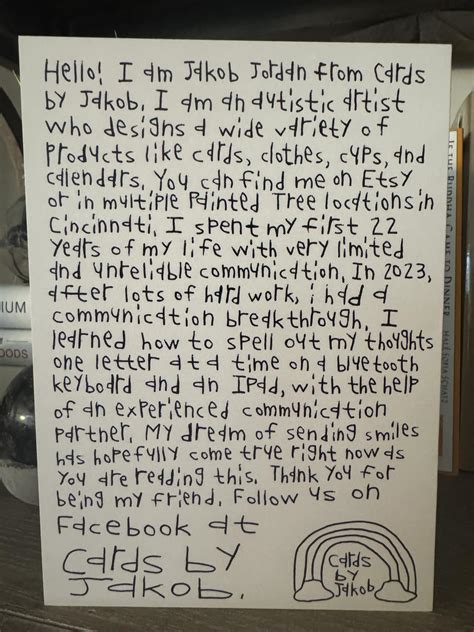 Hello! I am Jakob Jordan from Cards
by Jakob. I am an autistic artist
who designs a wide variety of
products like cards, clothes, cups, and
calendars. You can find me on Etsy
or in multiple Painted Tree locations in
Cincinnati. I spent my first 22
years of my life with very limited
and unreliable communication. In 2023,
after lots of hard work, i had a
communication breakthrough. I
learned how to spell out my thoughts
one letter at a time on a bluetooth
keyboard and an IPad, with the help
of an experienced communication
partner. My dream of sending smiles
has hopefully come true right now as
you are reading this. Thank You for
being my friend. Follow us on
Facebook at
Cards by
Jakob.
Cards
by
Jakob
IUM
OODS
IF THE BUDDHA CAME TO DINNER